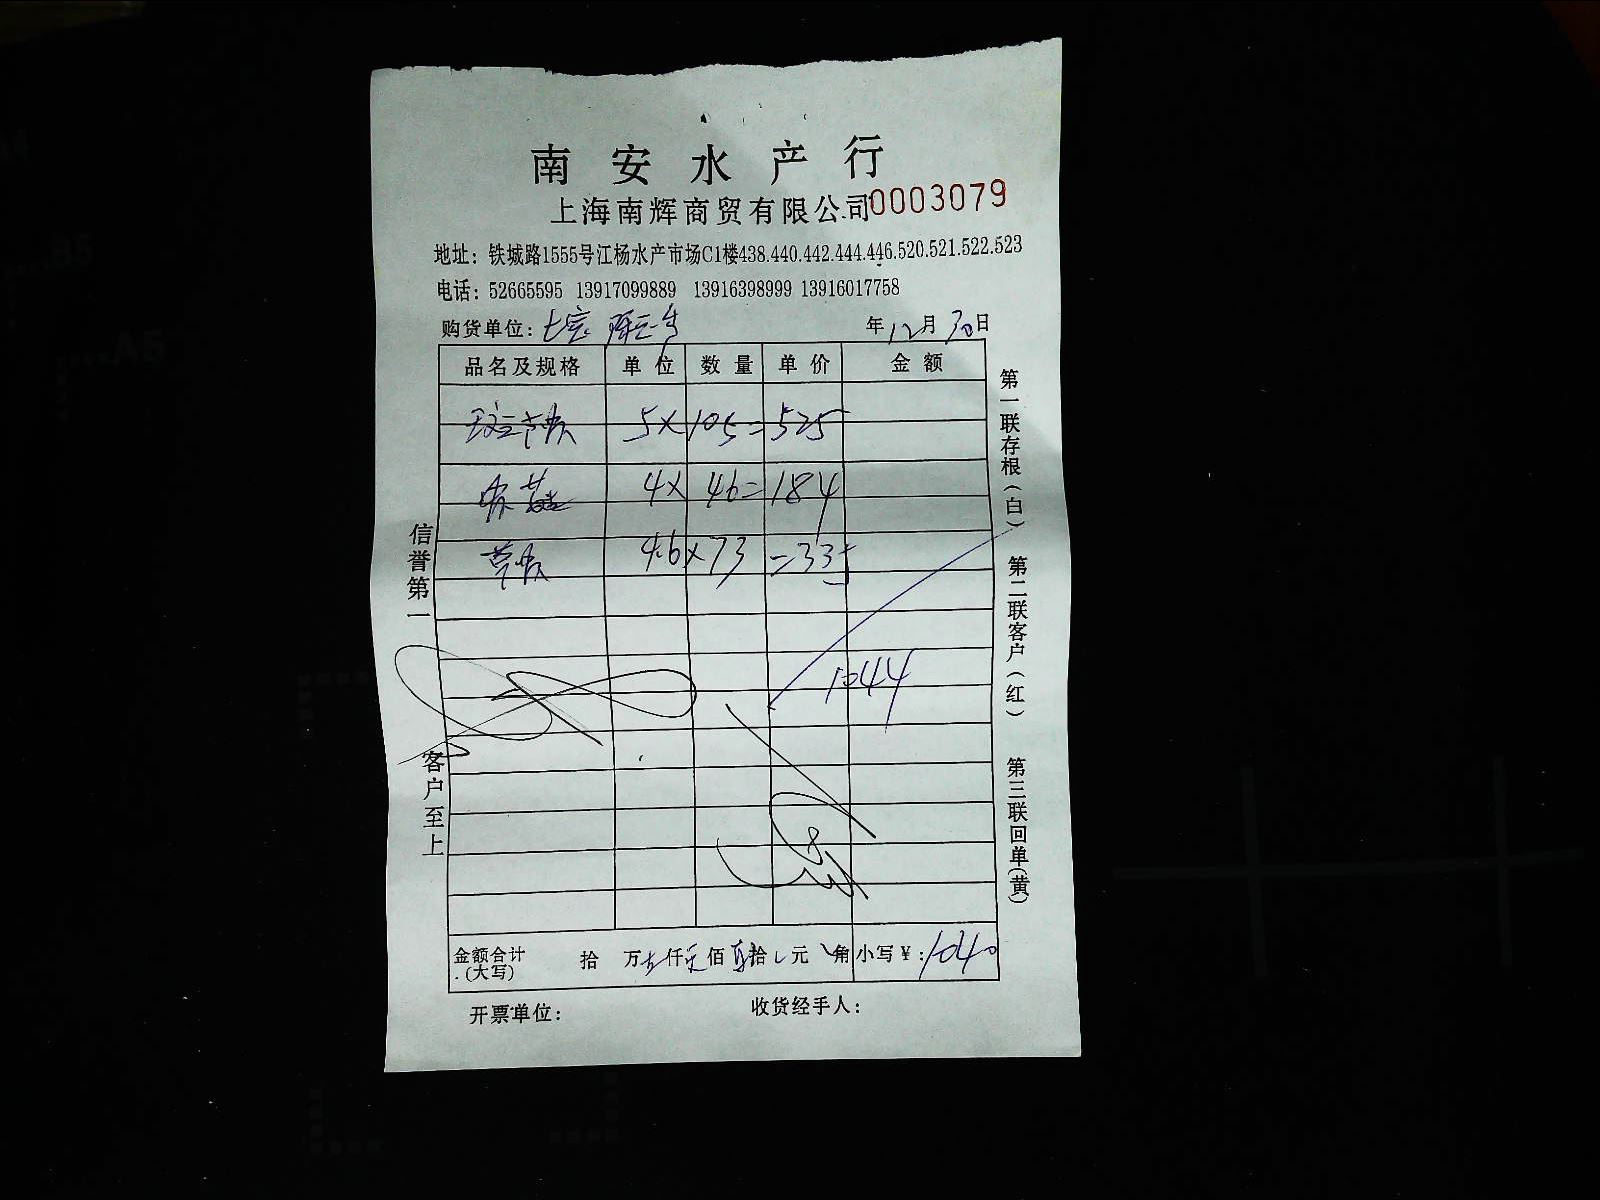 南安水产行
上海南辉商贸有限公司 0003079
地址：铁城路1555号江杨水产市场C1楼438.440.442.444.446.520.521.522.523
电话：52665595 13917099889 13916398999 13916017758
购货单位：七宝 年12月30日
品名及规格 单位 数量 单价 金额
5×105=525
4×46=184
4.6×73=335
1044
金额合计（大写） 拾 万 仟 佰 拾 元 角 小写￥：1040
开票单位： 收货经手人：
信誉第一 客户至上
第一联存根（白） 第二联客户（红） 第三联回单（黄）